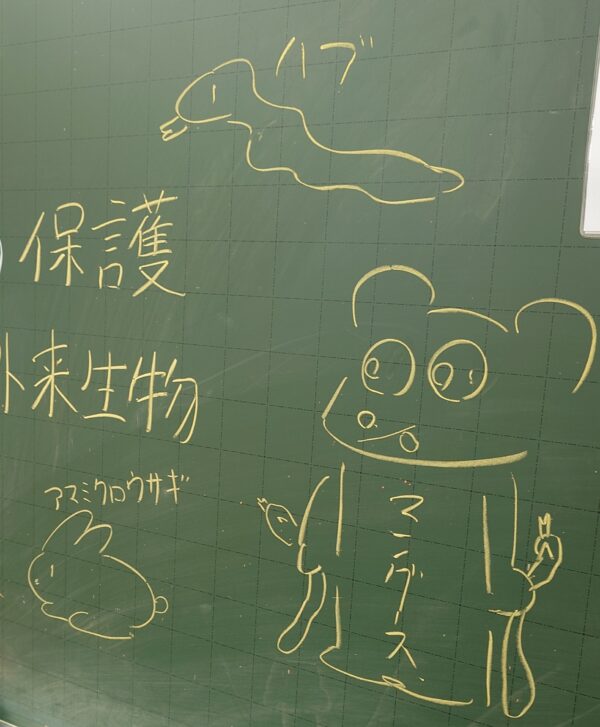 ハブ
保護
外来生物
アマミクロウサギ
マングース